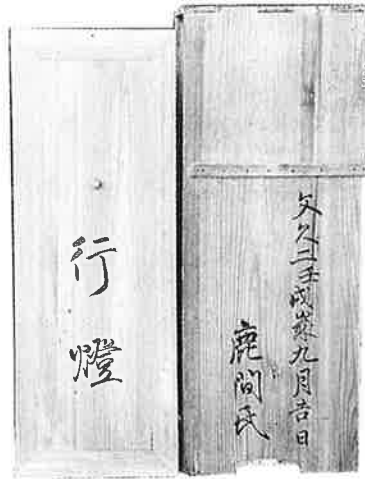 文久二壬戌歳九月吉日
鹿間氏
行燈